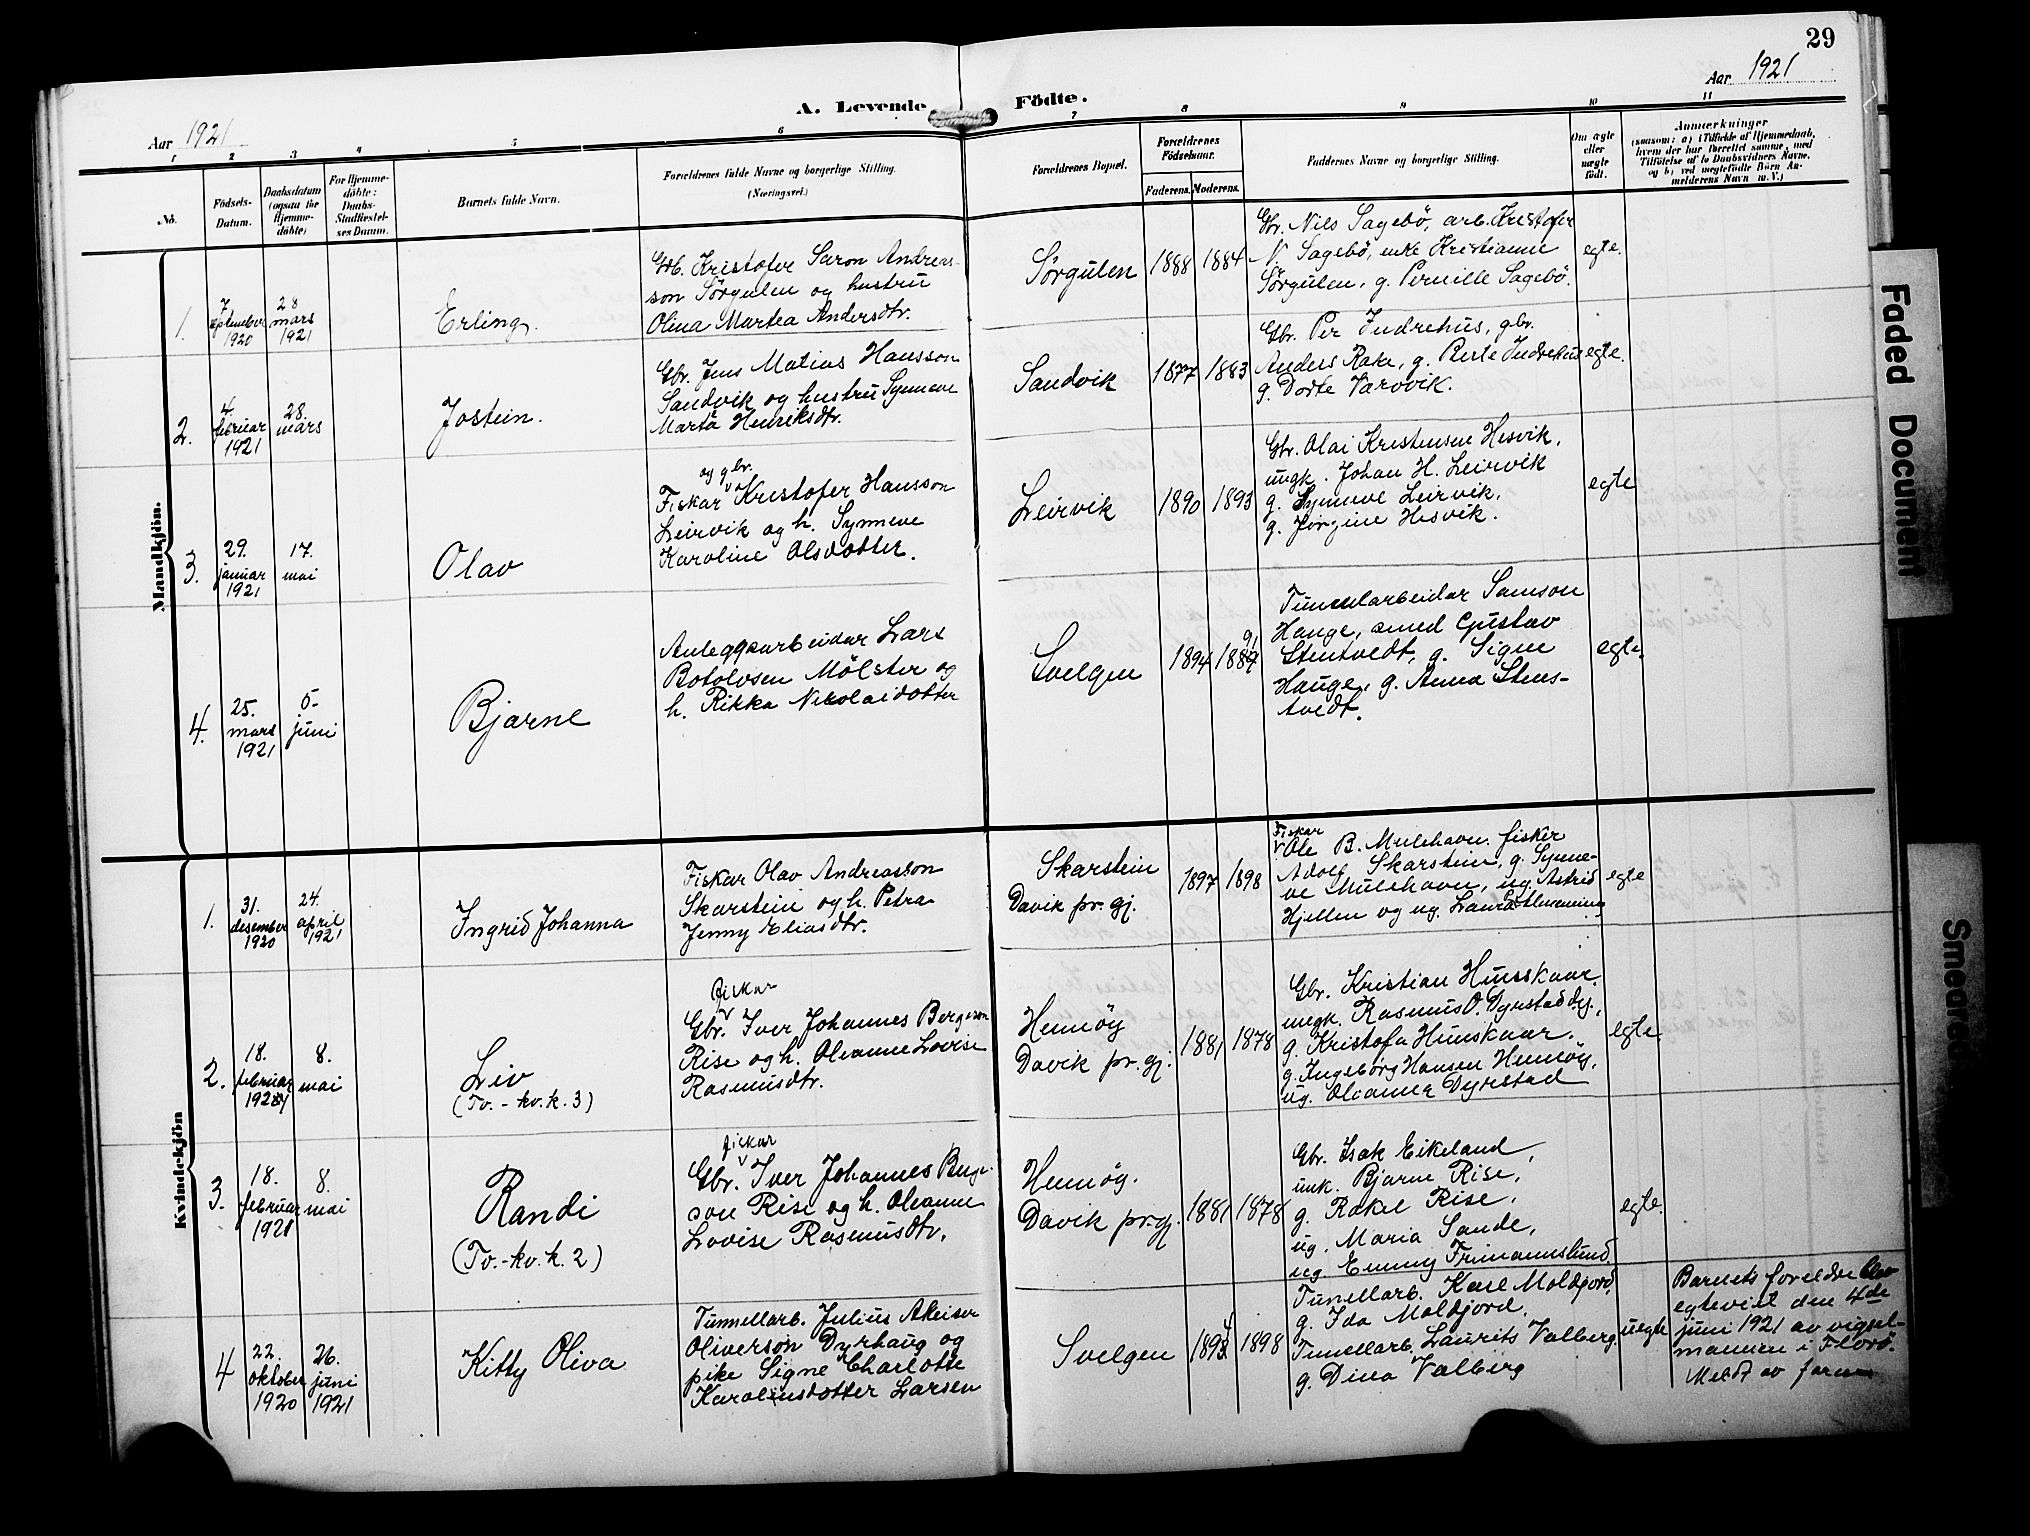 29
Aar 1921
A. Levende Födte.
Aar 1921
1 2 3 4 5 6 7 8 9 10 11
No.
Födsels-
Datum.
Daabsdatum
(ogsaa for
Hjemme-
döbte)
For Hjemme-
döbte:
Daabs-
Stadfæstel-
ses Datum.
Barnets fulde Navn.
Forældrenes fulde Navne og borgerlige Stilling.
(Næringsvei.)
Forældrenes Bopæl.
Forældrenes
Födselsaar.
Faderens. Moderens.
Faddernes Navne og borgerlige Stilling.
Om ægte
eller
uægte
födt.
Anmærkninger
(saasom: a) i Tilfælde af Hjemmedaab,
hvem der har forrettet samme, med
Tilföielse af to Daabsvidners Navne,
og b) ved uægtefödte Börn An-
melderens Navn m. V.)
Mandkjön.
1.
7
september
1920
28
mars
1921
Erling.
Gb. Kristofer Saron Andreas-
son Sørgulen og hustru
Olina Martea Andersdtr.
Sørgulen
1888
1884
Gbr. Nils Sagebö, arb. Kristofer
N. Sagebö, enke Kristianne
Sørgulen, g. Pernille Sagebö.
egte.
2.
4.
februar
1921
28.
mars
Jostein.
Gbr. Jens Matias Hansson
Sandvik og hustru Synneve
Marta Henriksdtr.
Sandvik
1877
1883
Gbr. Per Indrehus, gbr.
Anders Rake, g. Berte Indrehus
g. Dorte Varvvik.
egte.
3.
29.
januar
1921
17.
mai
Olav
og gbr.
Fiskar Kristofer Hansson
Leirvik og h. Synneve
Karoline Olsdotter.
Leirvik
1890
1893
Gbr. Olai Kristensen Hesvik,
ungk. Johan H. Leirvik
g. Synneve Leirvik,
g. Jørgine Hesvik.
egte
4.
25.
mars
1921
5-
juni
Bjarne
Anleggsarbeidar Lars
Botolvsen Mölster og
h. Rikka Nikolaidotter
Svelgen
1894
91
Tunnelarbeidar Samson
Hauge, smed Gustav
Stentvedt, g. Signe
Hauge, g. Anna Stens-
tvedt.
egte.
Kvindekjön
1.
31.
desember
1920
24.
april
1921
Ingrid Johanna
Fiskar Olav Andreasson
Skarstein og h. Petra
Jenny Eliasdtr.
Skarstein
Davik pr. gj.
1897
1898
Fiskar
Ole B. Mulehavn fisker
Adolf Skarstein, g. Synne-
ve Mulehavn, ug. Astrid
Hjellen og ug. Laura
egte
2.
18.
februar
1921
8.
mai
Liv
(Tv. - kv. k. 3)
fiskar
Gbr. Iver Johannes Bergeson
Rise og h. Oleanne Lovise
Rasmusdtr.
Hennöy
Davik pr. gj.
1881
1878
Gbr. Kristian Hunskaar,
ungk. Rasmus O. Dyrstad
g. Kristofa Hunskaar.
g. Ingeborg Hansen Hennöy,
ug. Oleanna Dyrstad
egte.
3.
18.
februar
1921
8.
mai
Randi
(Tv.-kv. k. 2)
fiskar
Gbr. Iver Johannes Berge-
son Rise og h. Oleanne
Lovise Rasmusdtr.
Hennöy.
Davik pr.gj.
1881
1878
Gbr. Isak Eikeland,
unk. Bjarne Rise,
g. Rakel Rise,
ug. Maria Sande,
ug. Emmy Frimannslund.
egte.
4
22.
oktober
1920
26.
juni
1921
Kitty Oliva
Tunnellarb. Julius
Oliverson Dyrhaug og
pike Signe Charlotte
Karolinsdotter Larsen
Svelgen
1894
1898
Tunellarb. Karl Moldjord,
g. Ida Moldjord,
Tunellarb. Laurits Valberg.
g. Dina Valberg
uegte
Barnets foreldre blev
egteviet den 4de
juni 1921 av vigsel-
mannen i Florö.
Meldt av faren
Faded Document
Smeared